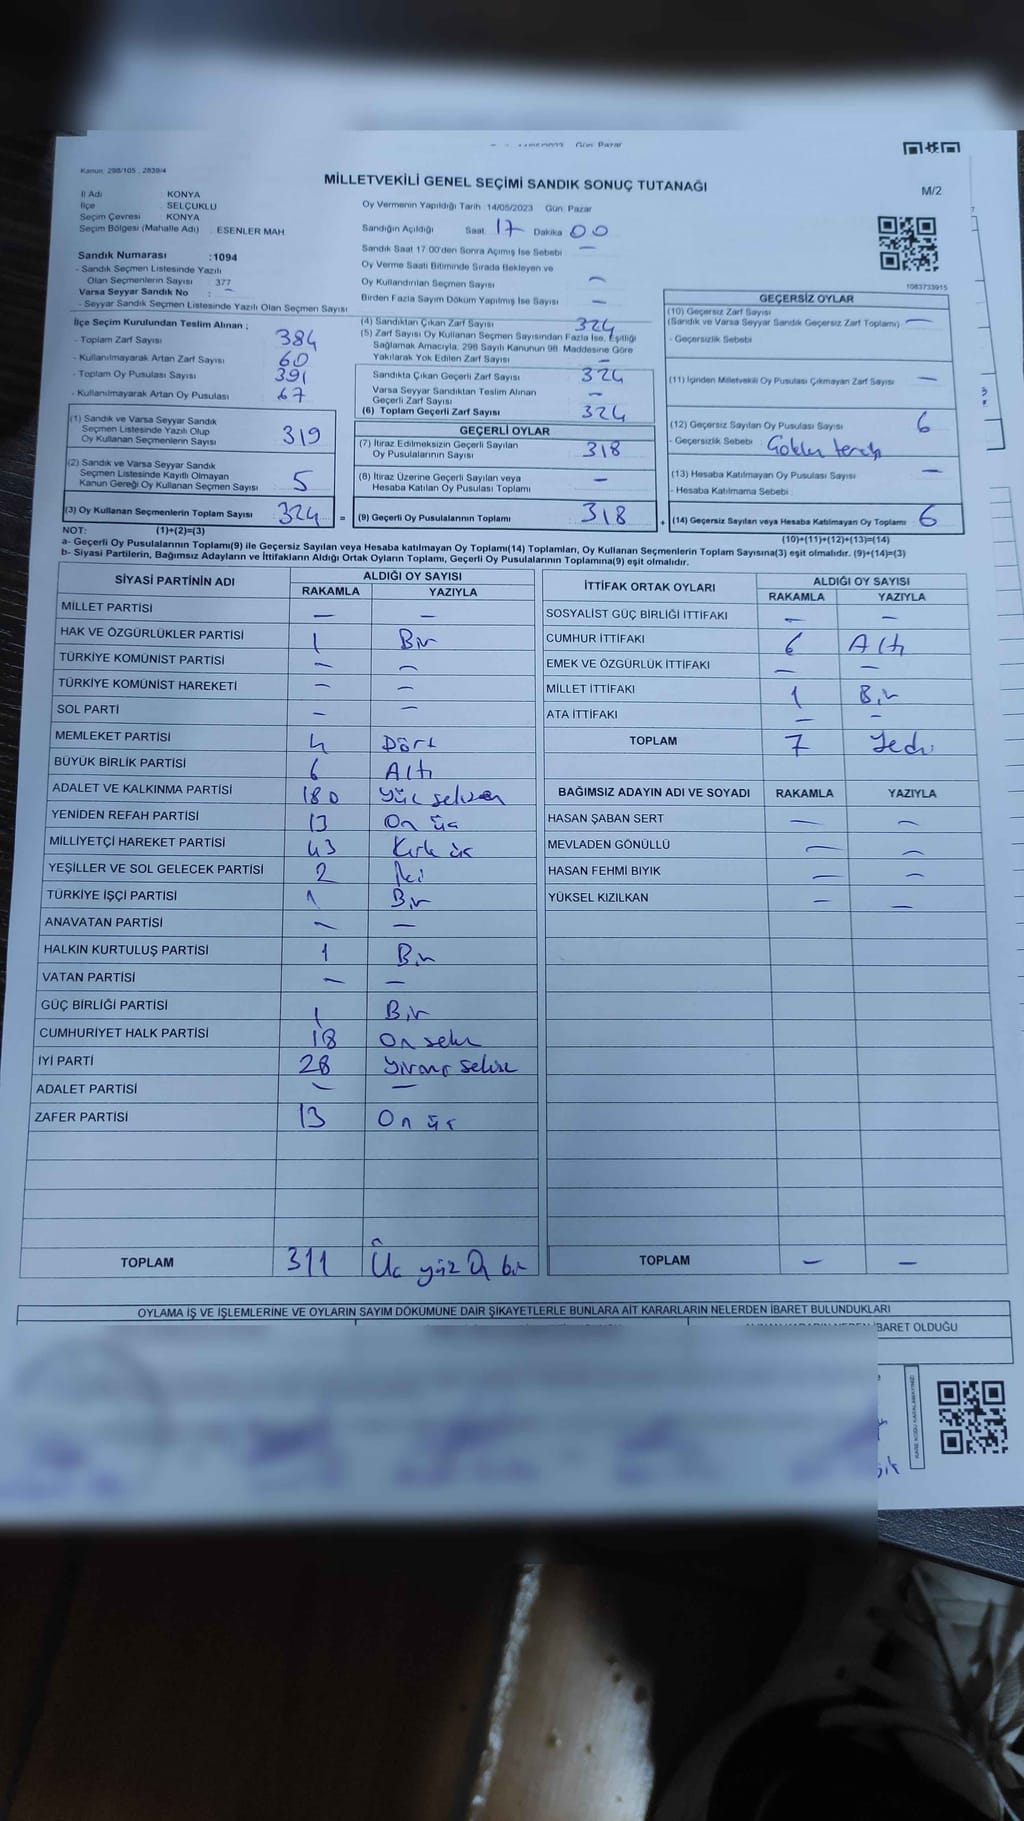 Gün: Pazar
Kanun: 298/105 , 2839/4
MİLLETVEKİLİ GENEL SEÇİMİ SANDIK SONUÇ TUTANAĞI
M/2
İl Adı KONYA
İlçe SELÇUKLU
Seçim Çevresi KONYA
Seçim Bölgesi (Mahalle Adı) : ESENLER MAH
Oy Vermenin Yapıldığı Tarih :14/05/2023 Gün: Pazar
Sandığın Açıldığı Saat: 17 Dakika 00
Sandık Saat 17:00'den Sonra Açmış İse Sebebi —
Oy Verme Saati Bitiminde Sırada Bekleyen ve
Oy Kullandırılan Seçmen Sayısı —
Birden Fazla Sayım Döküm Yapılmış İse Sayısı —
Sandık Numarası :1094
- Sandık Seçmen Listesinde Yazılı
Olan Seçmenlerin Sayısı : 377
Varsa Seyyar Sandık No : —
- Seyyar Sandık Seçmen Listesinde Yazılı Olan Seçmen Sayısı
1083733915
İlçe Seçim Kurulundan Teslim Alınan ;
- Toplam Zarf Sayısı 384
- Kullanılmayarak Artan Zarf Sayısı 60
- Toplam Oy Pusulası Sayısı 391
- Kullanılmayarak Artan Oy Pusulası 67
(1) Sandık ve Varsa Seyyar Sandık
Seçmen Listesinde Yazılı Olup
Oy Kullanan Seçmenlerin Sayısı 319
(2) Sandık ve Varsa Seyyar Sandık
Seçmen Listesinde Kayıtlı Olmayan
Kanun Gereği Oy Kullanan Seçmen Sayısı 5
(3) Oy Kullanan Seçmenlerin Toplam Sayısı 324 =
(4) Sandıktan Çıkan Zarf Sayısı 324
(5) Zarf Sayısı Oy Kullanan Seçmen Sayısından Fazla İse, Eşitliği
Sağlamak Amacıyla, 298 Sayılı Kanunun 98. Maddesine Göre
Yakılarak Yok Edilen Zarf Sayısı —
Sandıkta Çıkan Geçerli Zarf Sayısı 324
Varsa Seyyar Sandıktan Teslim Alınan
Geçerli Zarf Sayısı —
(6) Toplam Geçerli Zarf Sayısı 324
GEÇERLİ OYLAR
(7) İtiraz Edilmeksizin Geçerli Sayılan
Oy Pusulalarının Sayısı 318
(8) İtiraz Üzerine Geçerli Sayılan veya
Hesaba Katılan Oy Pusulası Toplamı —
(9) Geçerli Oy Pusulalarının Toplamı 318 +
GEÇERSİZ OYLAR
(10) Geçersiz Zarf Sayısı
(Sandık ve Varsa Seyyar Sandık Geçersiz Zarf Toplamı) —
- Geçersizlik Sebebi
(11) İçinden Milletvekili Oy Pusulası Çıkmayan Zarf Sayısı —
(12) Geçersiz Sayılan Oy Pusulası Sayısı 6
- Geçersizlik Sebebi :
(13) Hesaba Katılmayan Oy Pusulası Sayısı —
- Hesaba Katılmama Sebebi :
(14) Geçersiz Sayılan veya Hesaba Katılmayan Oy Toplamı 6
NOT: (1)+(2)=(3) (10)+(11)+(12)+(13)=(14)
a- Geçerli Oy Pusulalarının Toplamı(9) ile Geçersiz Sayılan veya Hesaba katılmayan Oy Toplamı(14) Toplamları, Oy Kullanan Seçmenlerin Toplam Sayısına(3) eşit olmalıdır. (9)+(14)=(3)
b- Siyasi Partilerin, Bağımsız Adayların ve İttifakların Aldığı Ortak Oyların Toplamı, Geçerli Oy Pusulalarının Toplamına(9) eşit olmalıdır.
SİYASİ PARTİNİN ADI ALDIĞI OY SAYISI
RAKAMLA YAZIYLA
MİLLET PARTİSİ — —
HAK VE ÖZGÜRLÜKLER PARTİSİ 1 Bir
TÜRKİYE KOMÜNİST PARTİSİ — —
TÜRKİYE KOMÜNİST HAREKETİ — —
SOL PARTİ — —
MEMLEKET PARTİSİ 4 Dört
BÜYÜK BİRLİK PARTİSİ 6 Altı
ADALET VE KALKINMA PARTİSİ 180 Yüz seksen
YENİDEN REFAH PARTİSİ 13 On üç
MİLLİYETÇİ HAREKET PARTİSİ 43 Kırk üç
YEŞİLLER VE SOL GELECEK PARTİSİ 2 İki
TÜRKİYE İŞÇİ PARTİSİ 1 Bir
ANAVATAN PARTİSİ — —
HALKIN KURTULUŞ PARTİSİ 1 Bir
VATAN PARTİSİ — —
GÜÇ BİRLİĞİ PARTİSİ 1 Bir
CUMHURİYET HALK PARTİSİ 18 On sekiz
İYİ PARTİ 28 Yirmi sekiz
ADALET PARTİSİ — —
ZAFER PARTİSİ 13 On üç
TOPLAM 311 Üç yüz On bir
İTTİFAK ORTAK OYLARI ALDIĞI OY SAYISI
RAKAMLA YAZIYLA
SOSYALİST GÜÇ BİRLİĞİ İTTİFAKI — —
CUMHUR İTTİFAKI 6 Altı
EMEK VE ÖZGÜRLÜK İTTİFAKI — —
MİLLET İTTİFAKI 1 Bir
ATA İTTİFAKI — —
TOPLAM 7 Yedi
BAĞIMSIZ ADAYIN ADI VE SOYADI RAKAMLA YAZIYLA
HASAN ŞABAN SERT — —
MEVLADEN GÖNÜLLÜ — —
HASAN FEHMİ BIYIK — —
YÜKSEL KIZILKAN — —
TOPLAM — —
OYLAMA İŞ VE İŞLEMLERİNE VE OYLARIN SAYIM DÖKÜMÜNE DAİR ŞİKAYETLERLE BUNLARA AİT KARARLARIN NELERDEN İBARET BULUNDUKLARI
İBARET OLDUĞU
KARE KODU KARALAMAYINIZ